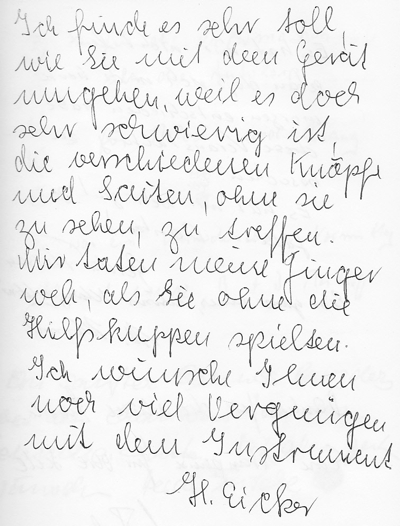 Ich finde es sehr toll,
wie Sie mit dem Gerät
umgehen, weil es doch
sehr schwierig ist,
die verschiedenen Knöpfe
und Saiten, ohne sie
zu sehen, zu treffen.
Mir taten meine Finger
weh, als Sie ohne die
Hilfskuppen spielten.
Ich wünsche Ihnen
noch viel Vergnügen
mit dem Instrument
H. Eicker